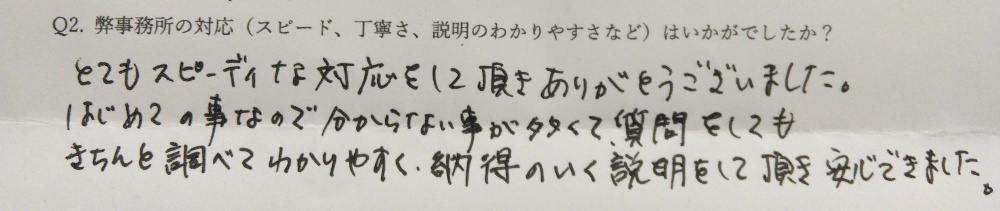 Q2. 弊事務所の対応（スピード、丁寧さ、説明のわかりやすさなど）はいかがでしたか？
とてもスピーディな対応をして頂きありがとうございました。
はじめての事なので分からない事が多くて、質問をしても
きちんと調べてわかりやすく、納得のいく説明をして頂き安心できました。